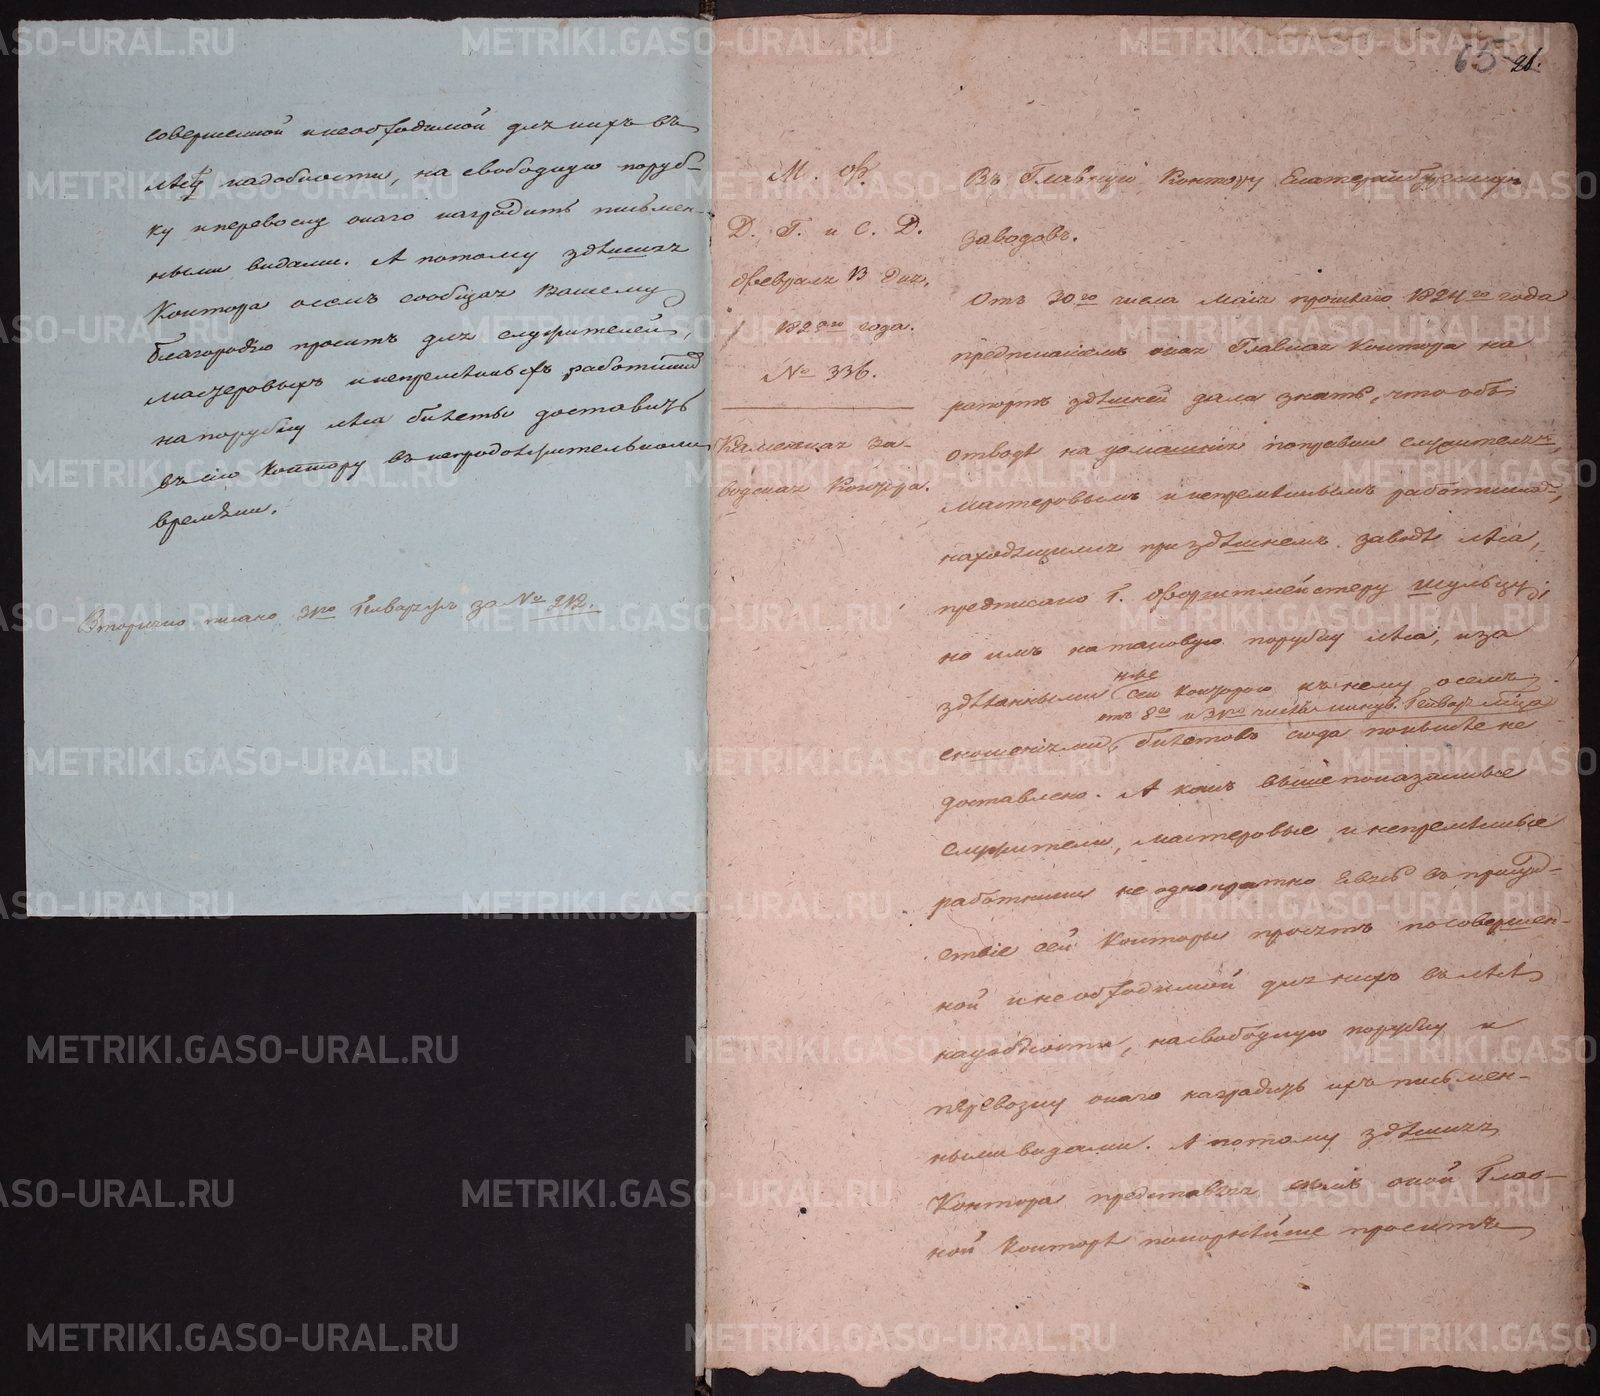 совершенной и необходимой для нихъ въ
лѣсѣ надобности, на свободную поруб-
ку и перевозку онаго наградить письмен-
ными видами. А потому здѣшняя
Контора о семъ сообщая Вашему
благородію проситъ для служителей,
мастеровыхъ и непремѣнныхъ работников
на порубку лѣса билеты доставить
въ сію Контору въ непродолжительномъ
времѣни.
Вторично писано 31го Генваря за № 212.
65 21.
М. Ф.
Д. Г. и С. Д.
Февраля 13 дня,
1825го года.
№ 336.
Каменская За-
водская Контора.
Въ Главную Контору Екатеринбургскихъ
заводовъ.
Отъ 30го числа Маія прошлаго 1824го года
предписаніемъ оная Главная Контора на
рапортъ здѣшней дала знать, что объ
отводѣ на домашнія поправки служителямъ,
мастеровымъ и непремѣннымъ работникамъ,
находящимся при здѣшнемъ заводѣ лѣса,
предписано Г. Форштмейстеру Шульцу;
но имъ на таковую порубку лѣса, и за
здѣланными сею Конторою къ нему о семъ
отъ 8го и 31го числъ минув. Генваря м͠ца
сношеніями, билетовъ сюда понынѣ не
доставлено. А какъ вышепоказанные
служители, мастеровые и непремѣнные
работники не однократно явясь въ присуд-
ствіе сей Конторы просятъ по совершен-
ной и необходимой для нихъ въ лѣсѣ
надобности, на свободную порубку и
перевозку онаго наградить ихъ письмен-
ными видами. А потому здѣшняя
Контора представляя о семъ оной Глав-
ной Конторѣ покорнѣйше проситъ
METRIKI.GASO-URAL.RU